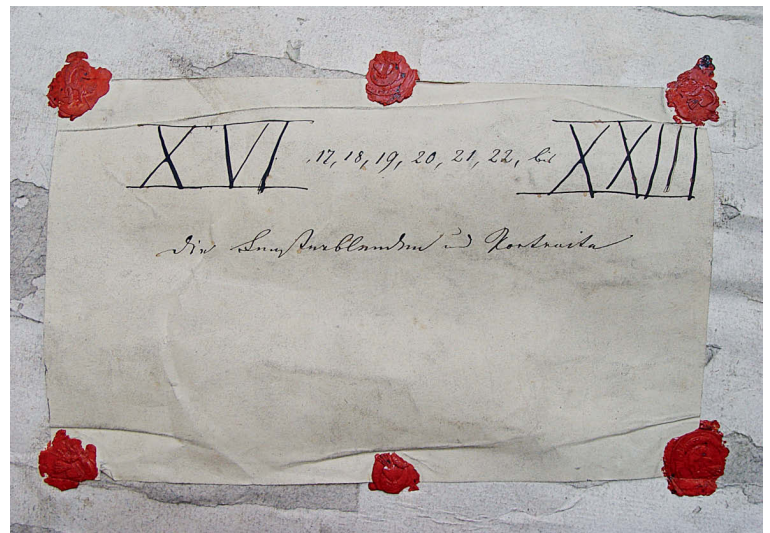 XVI, 17, 18, 19, 20, 21, 22, bis XXIII
Die Fensterblenden und Portraits